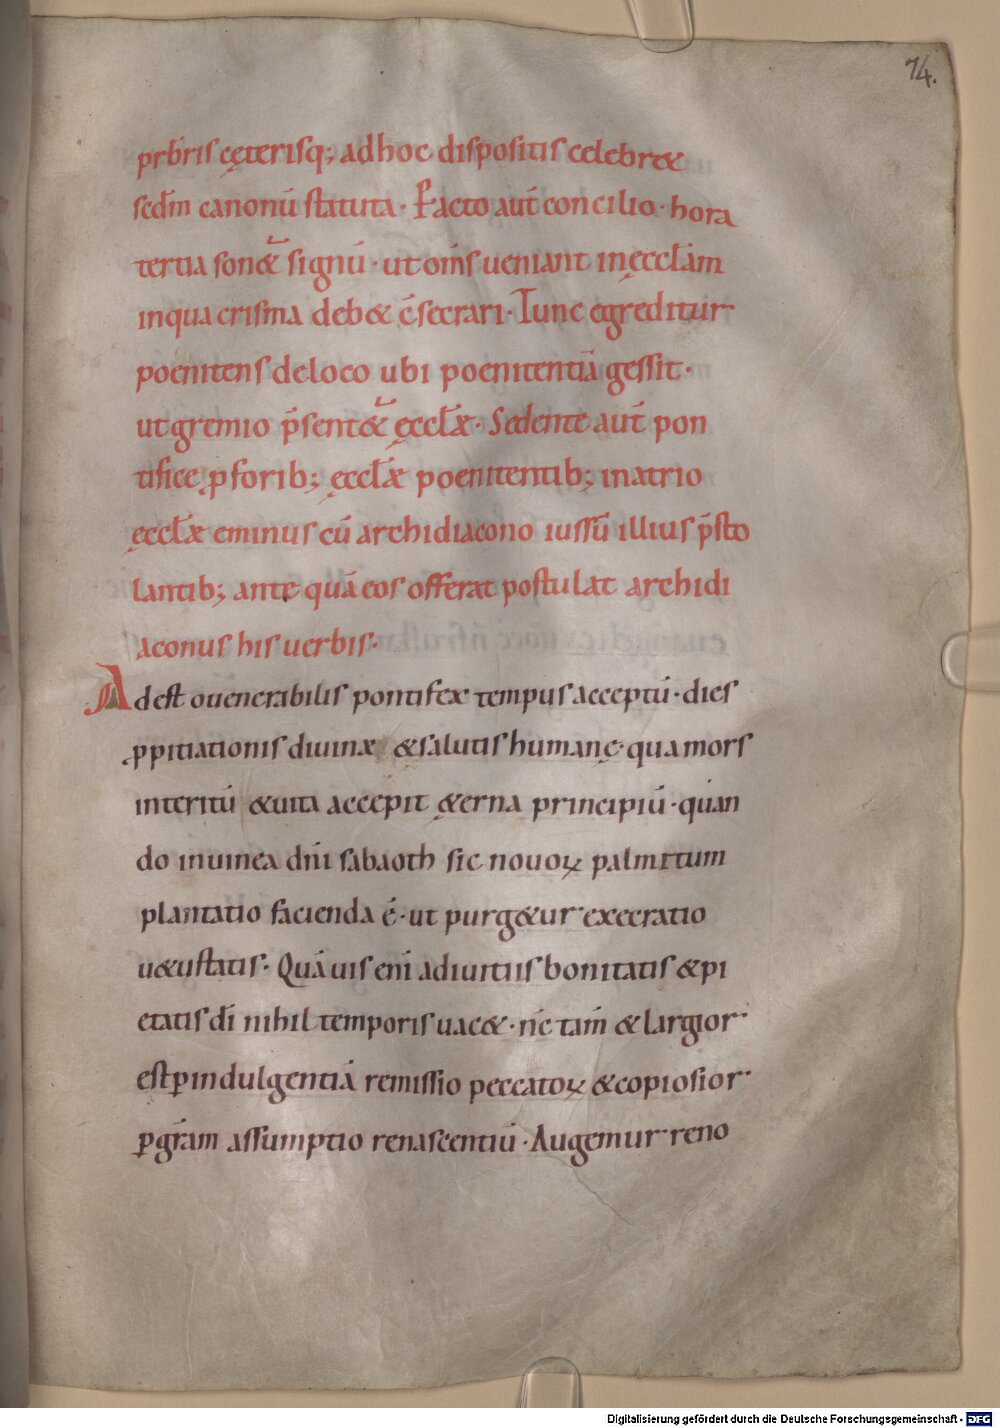 74.
prb̄ris cęterisq; adhoc dispositis celebr&
sedm̄ canonū statuta. Facto aut̄ concilio. hora
tertia son& signū. ut om̄s ueniant inęccl̄am
inqua crisma deb& c̄secrari. Tunc egreditur
poenitens deloco ubi poenitentiā gessit.
ut gremio p̄sent& ęccl̄æ. Sedente aut̄ pon
tifice ꝓforib; ęccl̄æ poenitentib; inatrio
ęccl̄æ eminus cū archidiacono iussū illius p̄sto
lantib; ante quā eos offerat postulat archidi
aconus his uerbis.
Adest ouenerabilis pontifex tempus acceptū. dies
ꝓpitiationis diuinæ &salutis humanę. qua mors
interitū &uita accepit &erna principiū. quan
do inuinea dn̄i sabaoth sic nouoꝝ palmitum
plantatio facienda ē. ut purg&ur execratio
u&ustatis. Quāuis eni̅ adiuitiis bonitatis &pi
etatis dī nihil temporis uac&. nc̄ tam̄ & largior
est ꝑindulgentiā remissio peccatoꝝ &copiosior
ꝑgr̄am assumptio renascentiū. Augemur reno
Digitalisierung gefördert durch die Deutsche Forschungsgemeinschaft - DFG